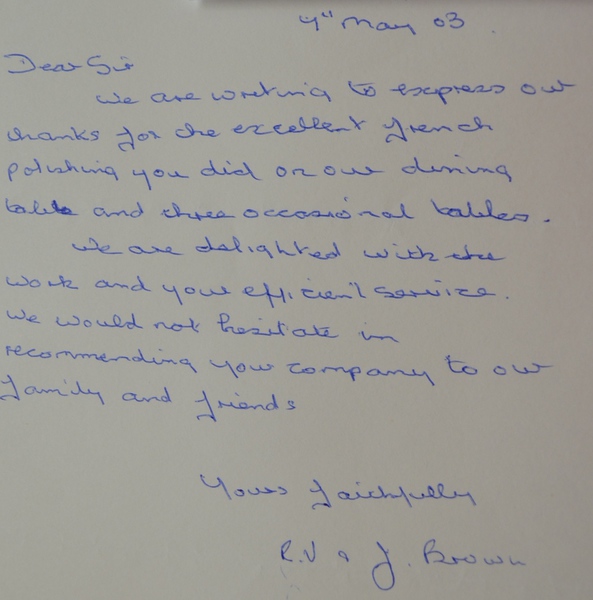 4th May 03.
Dear Sir
We are writing to express our
thanks for the excellent french
polishing you did on our dining
table and three occasional tables.
We are delighted with the
work and your efficient service.
We would not hesitate in
recommending your company to our
family and friends
Yours faithfully
R.V & J. Brown